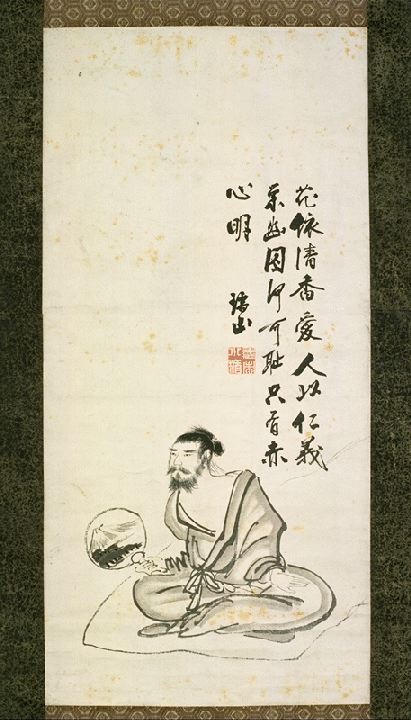 花依清香愛人以仁義
栄幽囚何可耻只有赤
心明
瑞山